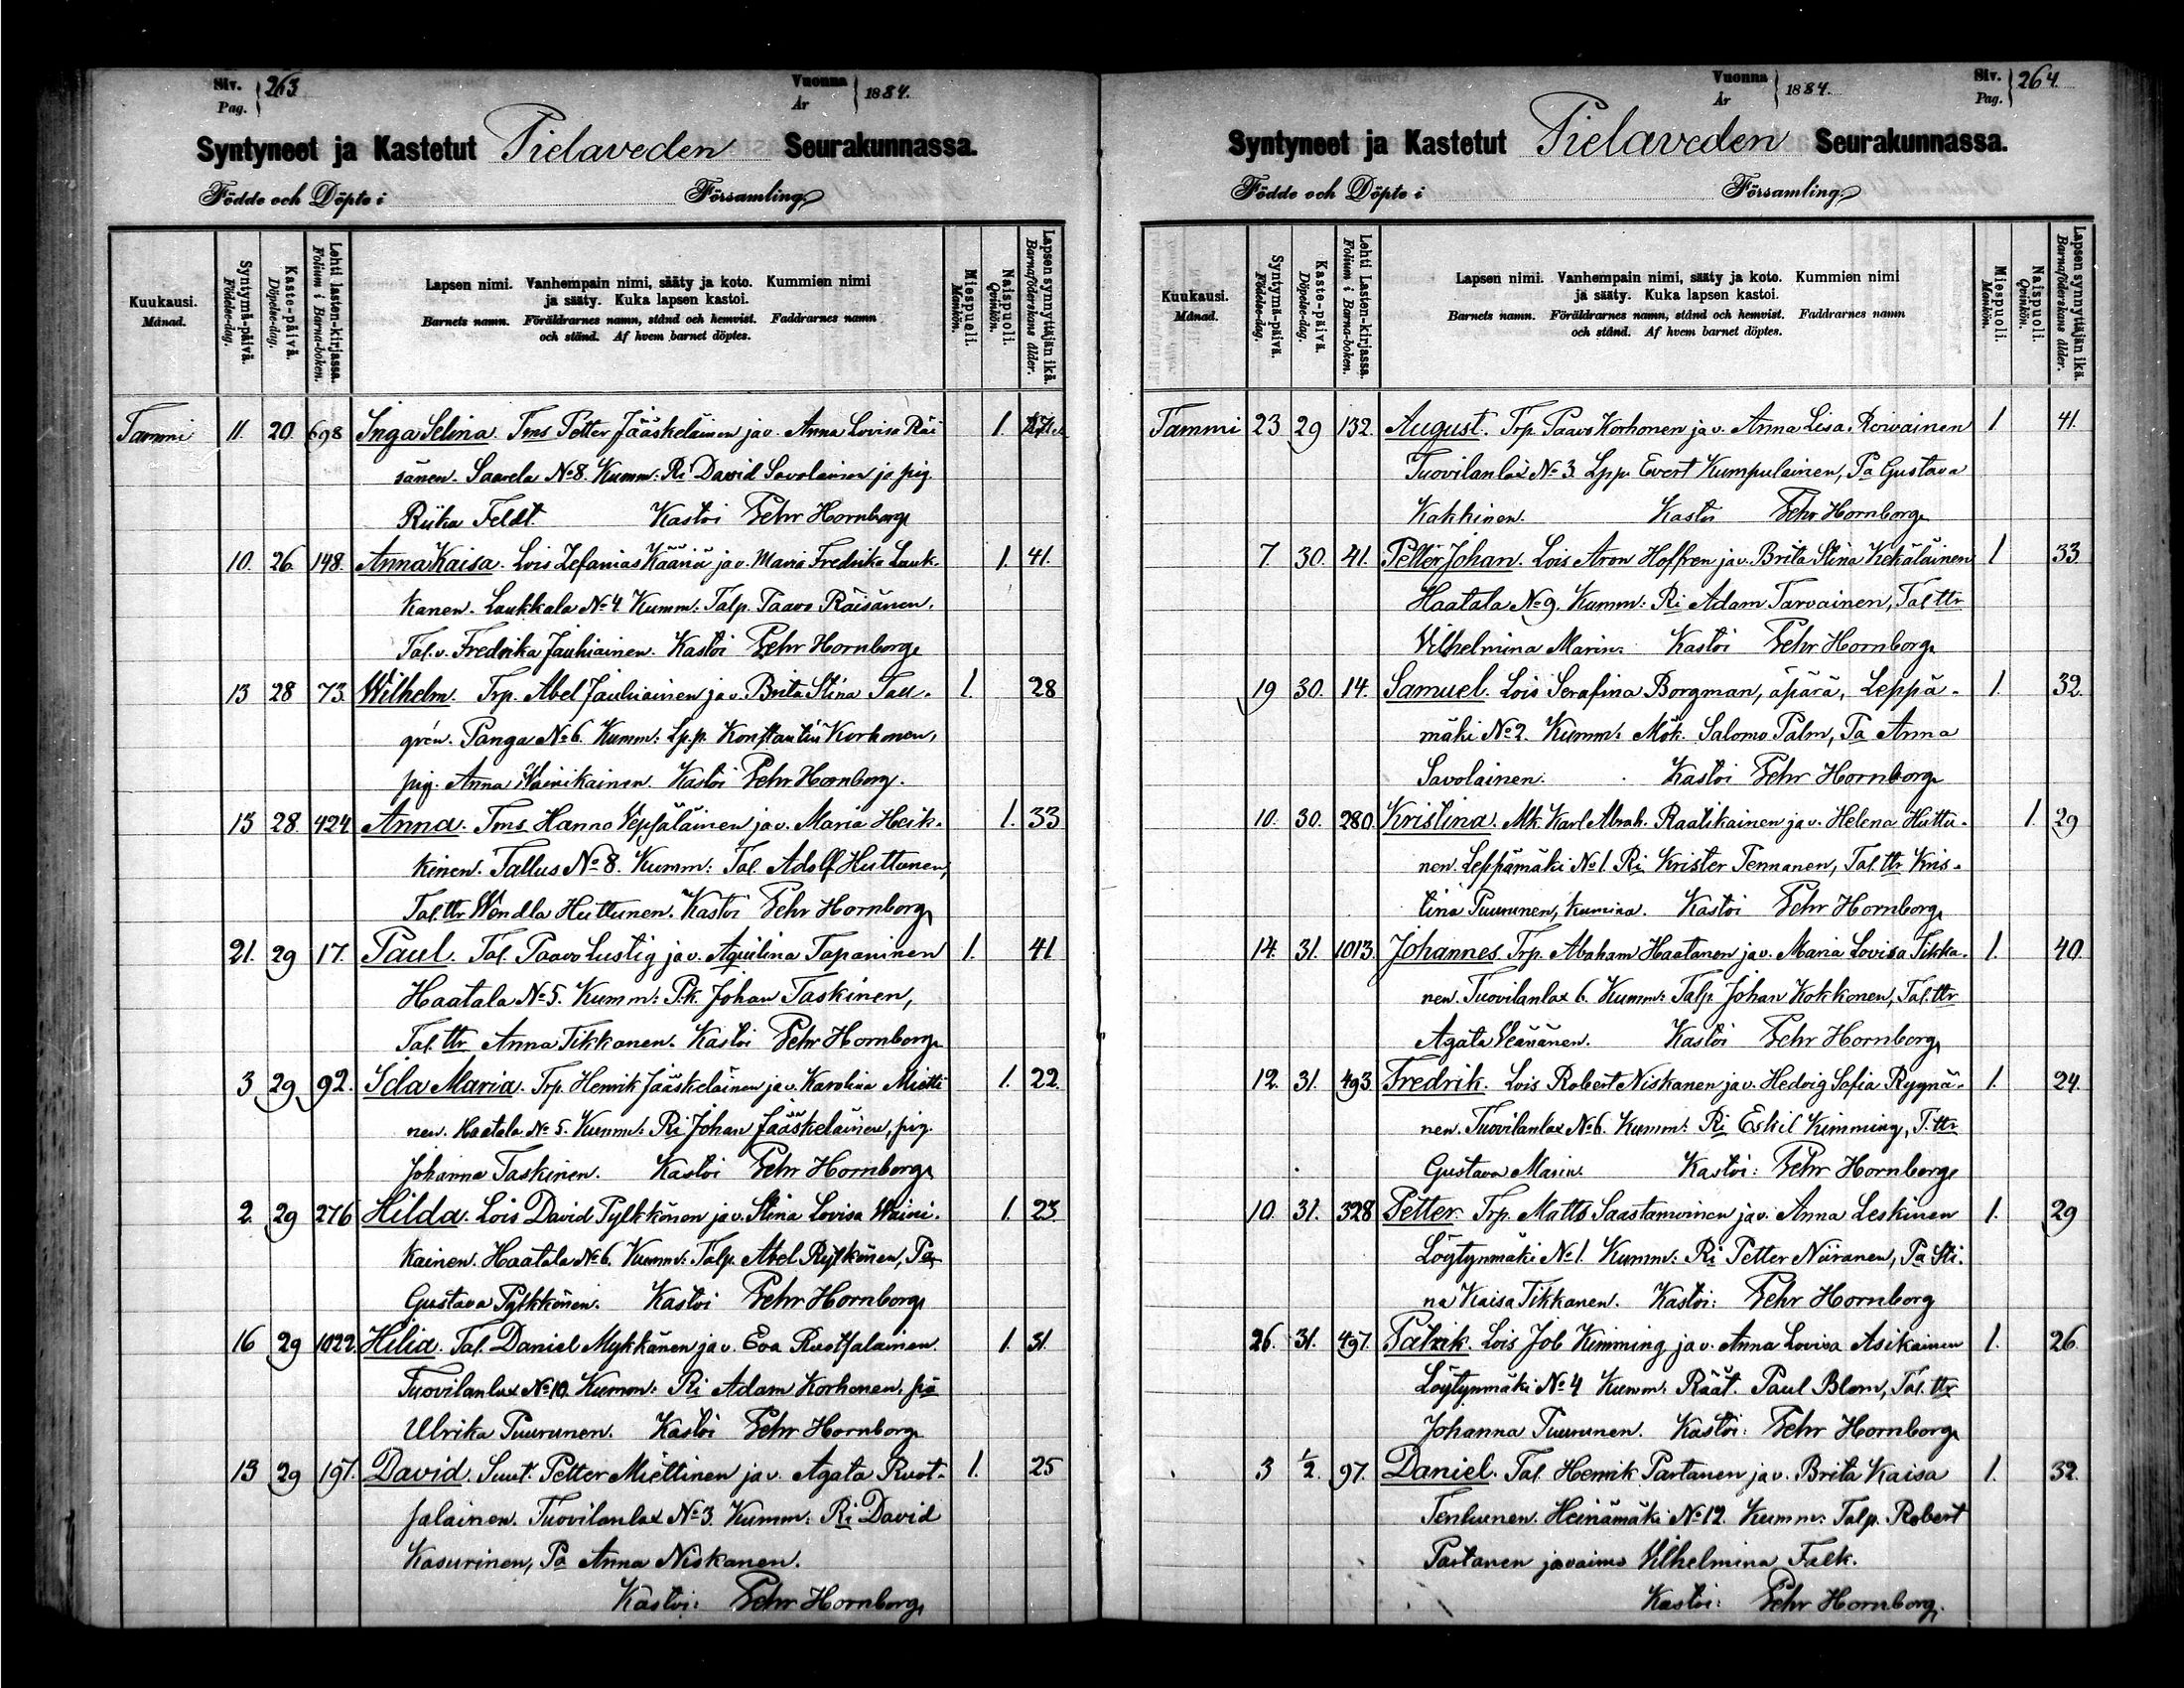 Siv. Pag. 263
Vuonna År 1884.
Syntyneet ja Kastetut Pielaveden Seurakunnassa.
Födde och Döpte i Församling.
Kuukausi. Månad.
Syntymä-päivä. Födelse-dag.
Kaste-päivä. Döpelse-dag.
Lehti lasten-kirjassa. Folium i Barna-boken.
Lapsen nimi. Vanhempain nimi, sääty ja koto. Kummien nimi
ja sääty. Kuka lapsen kastoi.
Barnets namn. Föräldrarnes namn, stånd och hemvist. Faddrarnes namn
och stånd. Af hvem barnet döptes.
Miespuoli. Mankön.
Naispuoli. Qvinkön.
Lapsen synnyttäjän ikä. Barnaföderskans ålder.
Tammi 11. 20. 698 Inga Selina. Tms Petter Jääskeläinen ja v. Anna Lovisa Räi 1.
sänen. Saarela No 8. Kumm: Ri David Savolainen ja pig.
Riika Feldt. Kastoi Pehr Hornborg
10. 26. 148. Anna Kaisa. Lois Zefanias Kääriä ja v. Maria Fredrika Lauk- 1. 41.
kanen. Laukkala No 4. Kumm: Talp. Paavo Räisänen.
Tal. v. Fredrika Jauhiainen. Kastoi Pehr Hornborg
13 28 73. Wilhelm. Trp. Abel Jauhiainen ja v. Brita Stina Tall- 1. 28
grén. Panga No 6. Kumm: Lp.p. Konstantin Korhonen,
pig. Anna Wainikainen. Kastoi Pehr Hornborg.
13 28. 424 Anna. Tms Hanno Vepsäläinen ja v. Maria Heik- 1. 33
kinen. Tallus No 8. Kumm: Tal. Adolf Huttunen,
Tal. ttr Wendla Huttunen. Kastoi Pehr Hornborg
21. 29 17. Paul. Tal. Paavo Lustig ja v. Aquilina Tapaninen 1. 41
Haatala No 5. Kumm: P.k. Johan Taskinen,
Tal. ttr Anna Tikkanen. Kastoi Pehr Hornborg
3 29 92. Ida Maria. Trp. Henrik Jääskeläinen ja v. Karolina Mietti 1. 22.
nen. Haatala No 5. Kumm: Ri Johan Jääskeläinen, pig.
Johanna Taskinen. Kastoi Pehr Hornborg
2. 29 276 Hilda. Lois David Pylkkönen ja v. Stina Lovisa Waini- 1. 23
kainen. Haatala No 6. Kumm: Talp. Abel Rytkönen, Pa
Gustava Pylkkönen. Kastoi Pehr Hornborg
16 29 1022. Hilia. Tal. Daniel Mykkänen ja v. Eva Ruotsalainen 1. 31.
Tuovilanlax No 10. Kumm: Ri Adam Korhonen, pa
Ulrika Puurunen. Kastoi Pehr Hornborg
13 29 197. David. Suut. Petter Miettinen ja v. Agata Ruot- 1. 25
salainen. Tuovilanlax No 3. Kumm: Ri David
Kasurinen, Pa Anna Niskanen.
Kastoi: Pehr Hornborg
Vuonna År 1884.
Siv. Pag. 264.
Syntyneet ja Kastetut Pielaveden Seurakunnassa.
Födde och Döpte i Församling.
Kuukausi. Månad.
Syntymä-päivä. Födelse-dag.
Kaste-päivä. Döpelse-dag.
Lehti Lasten-kirjassa. Folium i Barna-boken.
Lapsen nimi. Vanhempain nimi, sääty ja koto. Kummien nimi
ja sääty. Kuka lapsen kastoi.
Barnets namn. Föräldrarnes namn, stånd och hemvist. Faddrarnes namn
och stånd. Af hvem barnet döptes.
Miespuoli. Mankön.
Naispuoli. Qvinkön.
Lapsen synnyttäjän ikä. Barnaföderskans ålder.
Tammi 23 29 132. August. Trp. Paavo Korhonen ja v. Anna Lisa Roivainen 1 41.
Tuovilanlax No 3. Lpp. Evert Kumpulainen, Pa Gustava
Kakkinen. Kastoi Pehr Hornborg
7. 30. 41. Petter Johan. Lois Aron Hoffren ja v. Brita Stina Kekäläinen 1 33
Haatala No 9. Kumm: Ri Adam Tarvainen, Tal ttr
Vilhelmina Marin. Kastoi Pehr Hornborg
19 30. 14. Samuel. Lois Serafina Borgman, äpärä, Leppä- 1. 32.
mäki No 2. Kumm: Mök. Salomo Palm, Pa Anna
Savolainen. Kastoi Pehr Hornborg
10. 30. 280. Kristina. Mk. Karl Abrah. Raatikainen ja v. Helena Huttu- 1. 29
nen. Leppämäki No 1. Ri Krister Pennanen, Tal. ttr Kris-
tina Puurunen, kumina. Kastoi Pehr Hornborg
14. 31. 1013. Johannes. Trp. Abraham Haatanen ja v. Maria Lovisa Tikka- 1. 40.
nen. Tuovilanlax 6. Kumm: Talp. Johan Kokkonen, Tal. ttr
Agata Väänänen. Kastoi Pehr Hornborg
12. 31. 493. Fredrik. Lois Robert Niskanen ja v. Hedvig Sofia Ryynä- 1. 24.
nen. Tuovilanlax No 6. Kumm: Ri Eskil Kimming, T. ttr
Gustava Marin. Kastoi: Pehr Hornborg
10. 31. 328 Petter. Trp. Matts Saastamoinen ja v. Anna Leskinen 1. 29
Löytynmäki No 1. Kumm: Ri Petter Niiranen, Pa Sti-
na Kaisa Tikkanen. Kastoi: Pehr Hornborg
26. 31. 497. Patrik. Lois Job Kimming ja v. Anna Lovisa Asikainen 1. 26.
Löytynmäki No 4 Kumm: Räät. Paul Blom, Tal. ttr
Johanna Puurunen. Kastoi: Pehr Hornborg
3 1/2. 97. Daniel. Tal. Henrik Partanen ja v. Brita Kaisa 1. 32.
Tenhunen. Heinämäki No 12. Kumm: Talp. Robert
Partanen ja vaimo Vilhelmina Falk.
Kastoi: Pehr Hornborg.